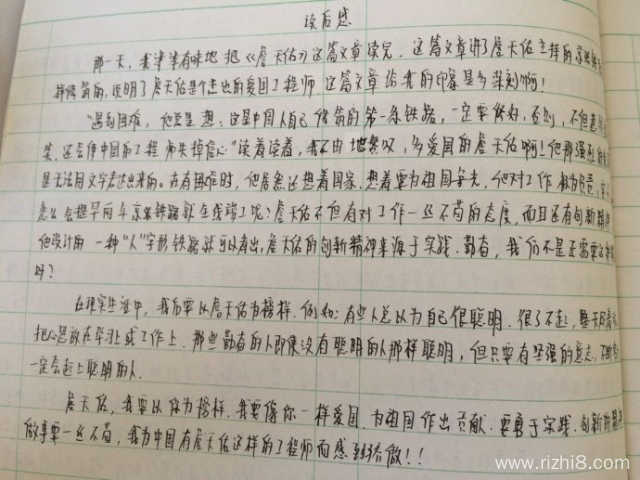 读后感
那一天,我津津有味地把《詹天佑》这篇文章读完.这篇文章讲了詹天佑主持的京张铁
修筑的,说明了詹天佑是个杰出的爱国工程师.这篇文章给我的印象是多深刻啊!
"遇到困难,他总是想:这是中国人自己修筑的第一条铁路,一定要修好,否则,不但惹
笑,还会使中国的工程师失掉信心"读着读着,我不由地赞叹,多爱国的詹天佑啊!他那强烈
是无法用文字表达出来的.在有困难时,他居然还想着国家.想着要为祖国争光,他对工作极为负责,
怎么会提早两年京张铁路就全线竣工呢?詹天佑不但有对工作一丝不苟的态度,而且还有创新精神
他设计的一种"人"字形铁路就可以看出,詹天佑的创新精神来源于实践.勤奋,我们不是正需要这种
吗?
在现实生活中,我们要以詹天佑为榜样.例如:有些人总以为自己很聪明.很了不起,整天
把心思放在学习或工作上.那些勤奋的人即使没有聪明的人那样聪明,但只要有坚强的意志,
一定会赶上聪明的人.
詹天佑,我要以你为榜样.我要像你一样爱国.为祖国作出贡献.要勇于实践.创新的
做事要一丝不苟,我为中国有詹天佑这样的工程师而感到骄傲!!
www.rizhi8.com